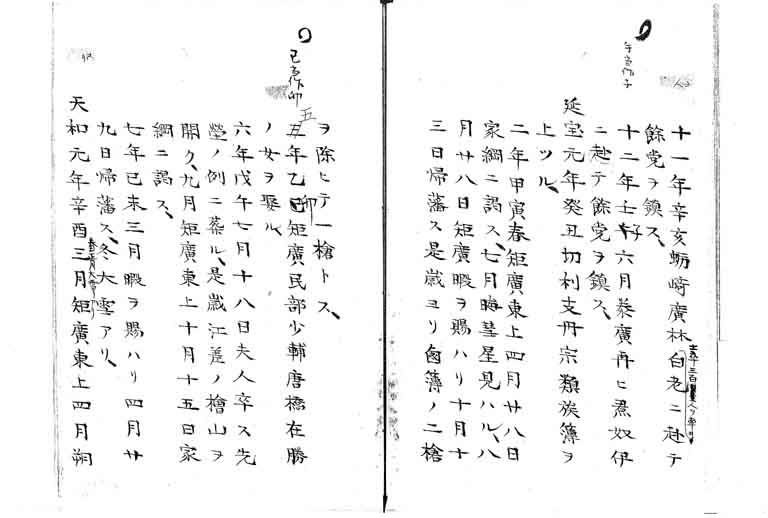 十一年辛亥蛎崎廣林白老ニ赴テ
餘党ヲ鎮ス、
十二年壬子六月泰廣再ヒ熊奴伊
ニ赴テ餘党ヲ鎮ス、
延宝元年癸丑切利支丹宗類族簿ヲ
上ツル、
二年甲寅春矩廣東上四月廿八日
家綱ニ謁ス、七月晦彗星見ハル、八
月廿八日矩廣暇ヲ賜ハリ十月十
三日帰藩ス是歳ヨリ鹵簿ノ二槍
ヲ除ヒテ一槍トス、
五年乙卯矩廣民部少輔唐橋在勝
ノ女ヲ娶ル、
六年戊午七月十八日夫人卒ス先
塋ノ例ニ葬ル、是歳江差ノ檜山ヲ
開ク、九月矩廣東上十月十五日家
綱ニ謁ス、
七年己未三月暇ヲ賜ハリ四月廿
九日帰藩ス、冬大雪アリ、
天和元年辛酉三月矩廣東上四月朔